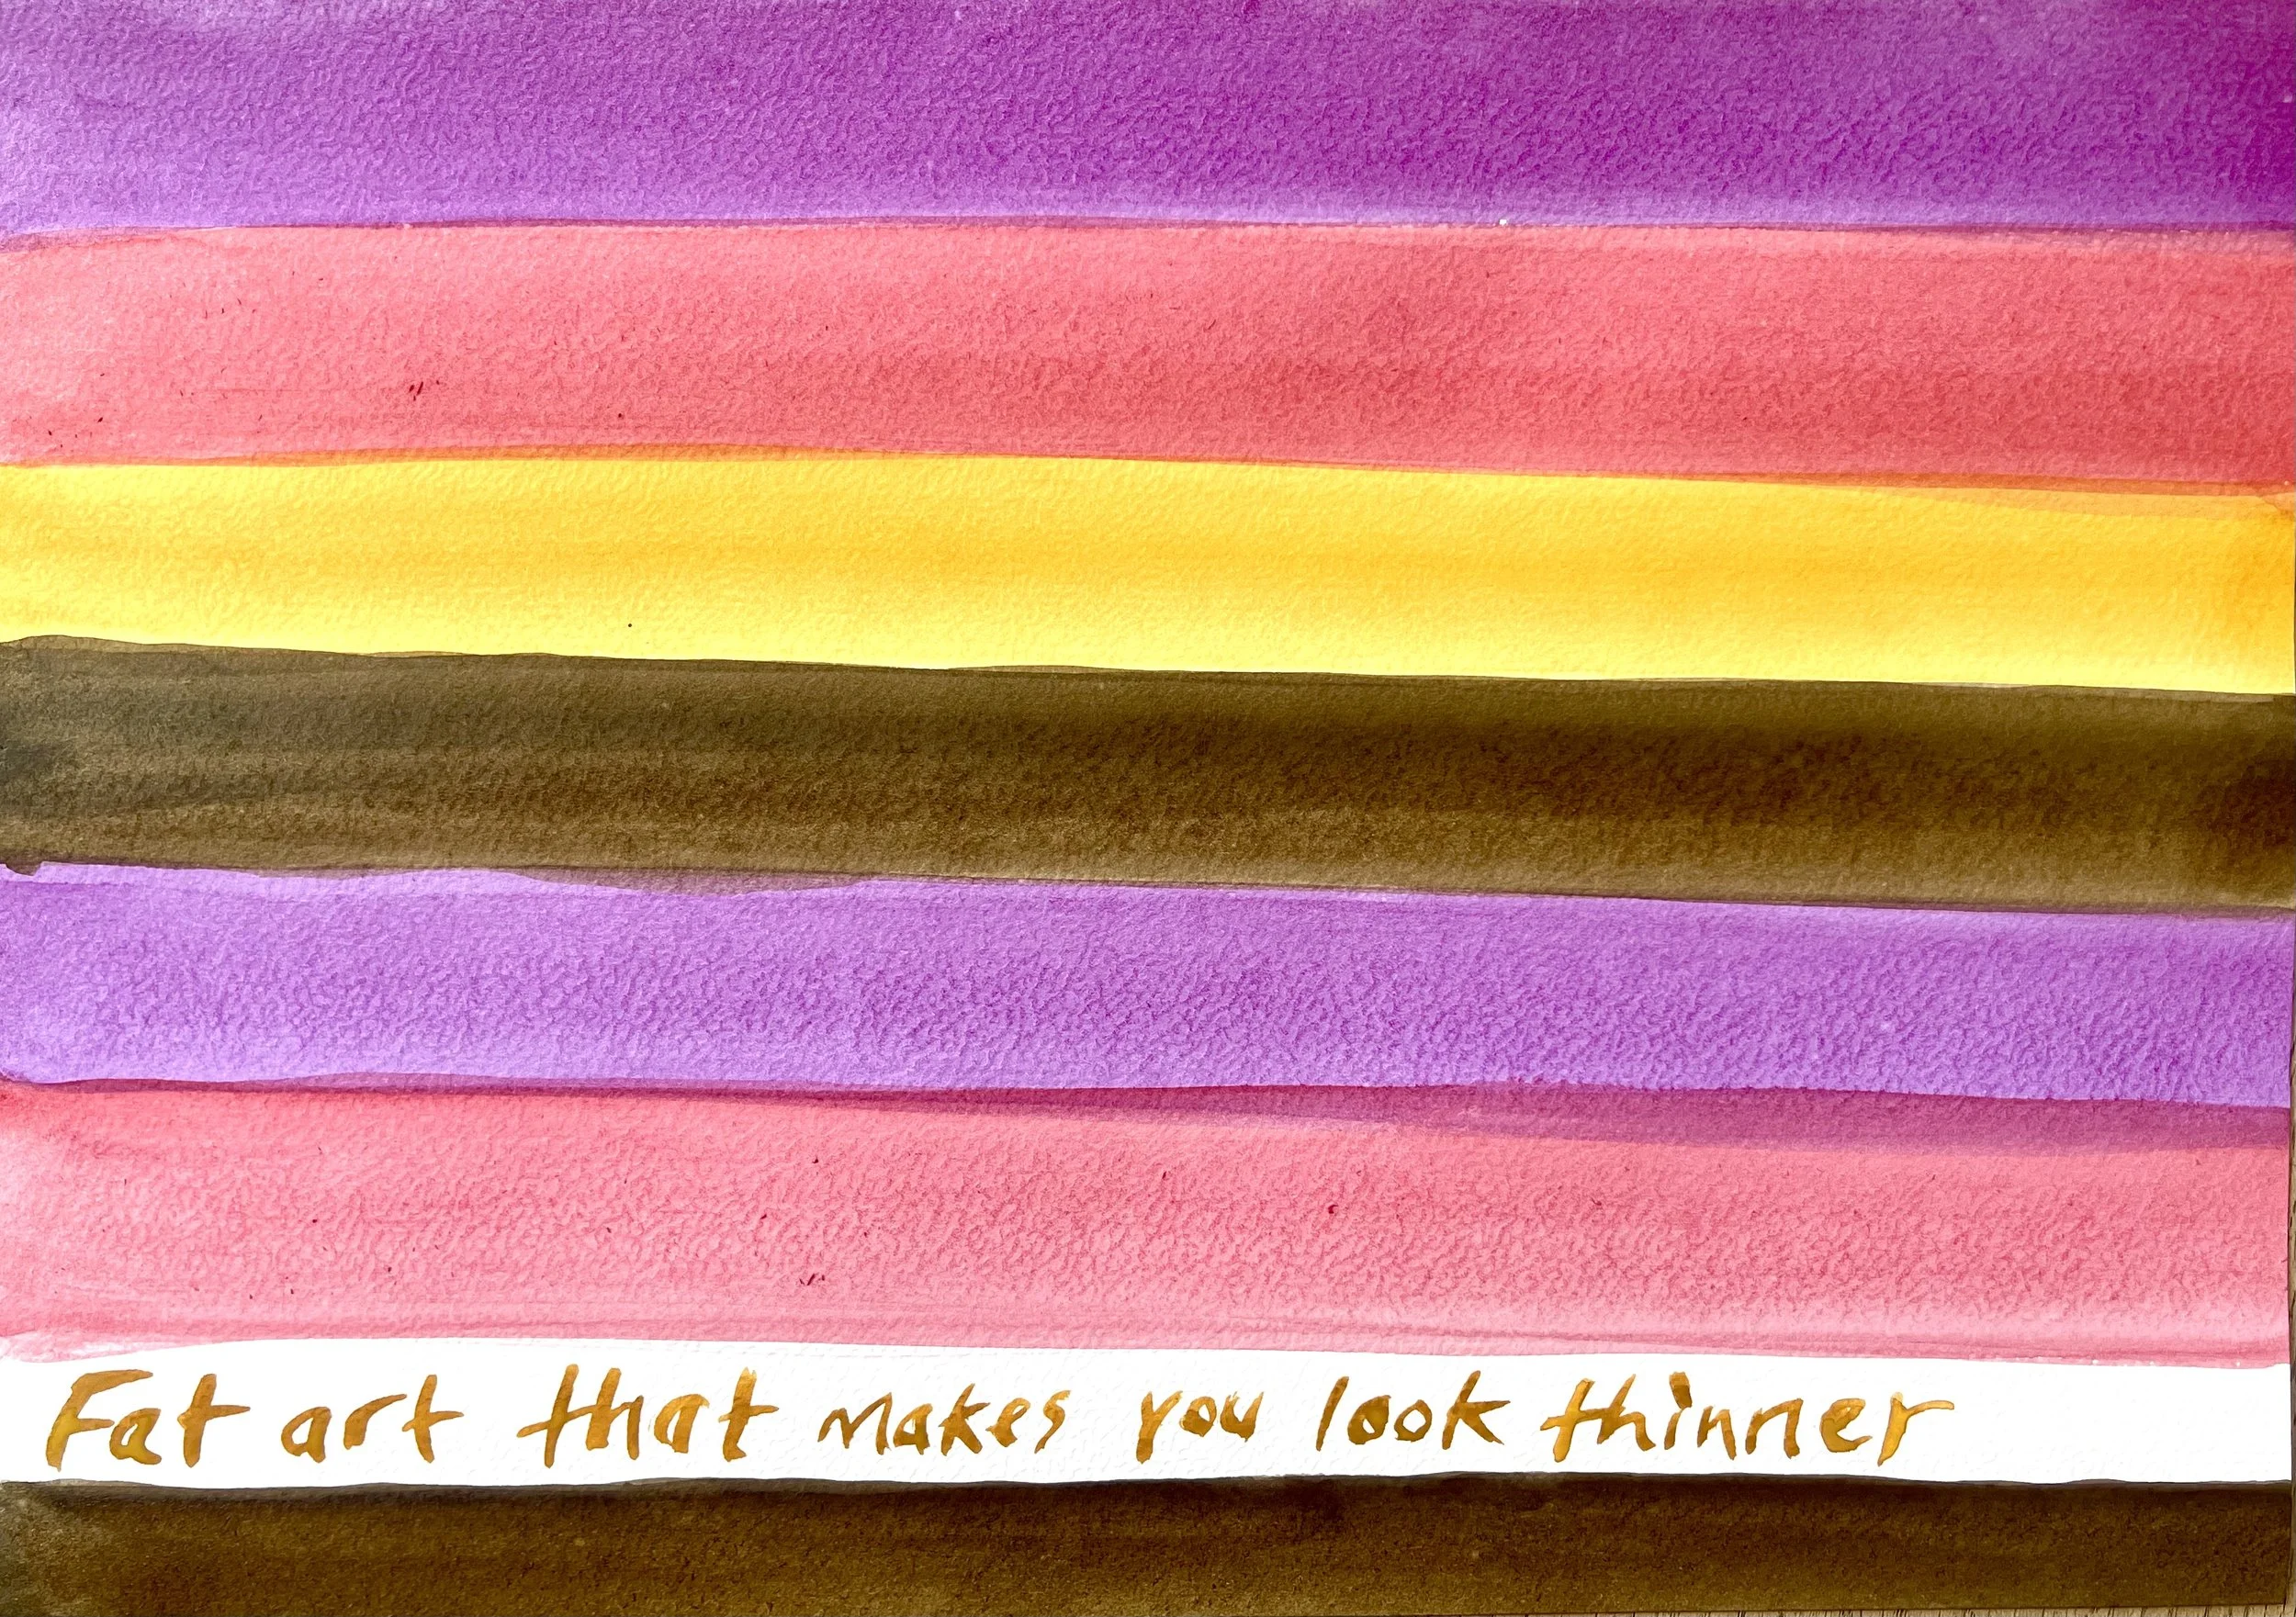 Fat art that makes you look thinner